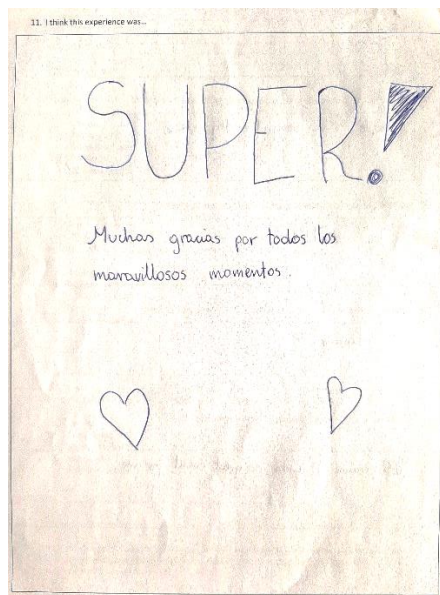 11. I think this experience was...
SUPER!
Muchas gracias por todos los
maravillosos momentos.